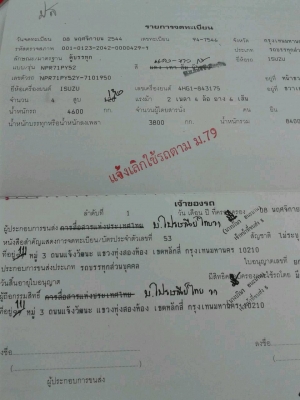 รายการจดทะเบียน
วันจดทะเบียน 08 พฤศจิกายน 2544 เลขทะเบียน 94-7544 จังหวัด กรุงเทพมหาน
รหัสตรวจสภาพ 001-0123-2042-0000429-1
ลักษณะ/มาตรฐาน ตู้บรรทุก
แบบ/รุ่น NPR71PY52 สี ยี่ห้อรถ ISUZU
เลขตัวรถ NPR71PY52Y-7101950 อยู่ที่
ยี่ห้อเครื่องยนต์ ISUZU เลขเครื่องยนต์ 4HG1-843175 อยู่ที่
จำนวน 4 สูบ จำนวน 2 เพลา 6 ล้อ ยาง 6 เส้น
น้ำหนักรถ 4600 กก
น้ำหนักบรรทุก/น้ำหนักลงเพลา 3800 กก. น้ำหนักรวม 8400
แจ้งเลิกใช้รถตาม ม.79
เจ้าของรถ
ลำดับที่ 1 วัน เดือน ปี 08 พฤศจิกายน
ผู้ประกอบการขนส่ง การสื่อสารแห่งประเทศไทย บ.ไปรษณีย์ไทย
หนังสือสำคัญแสดงการจดทะเบียน/บัตรประจำตัวเลขที่ 53 สัญชาติ ไม่ระบุ
ที่อยู่ หมู่ 3 ถนนแจ้งวัฒนะ แขวงทุ่งสองห้อง เขตหลักสี่ กรุงเทพมหานคร 10210
ประกอบการขนส่งประเภท รถบรรทุกส่วนบุคคล ใบอนุญาตเลขที่
วันสิ้นอายุใบอนุญาต
ผู้ถือกรรมสิทธิ์ การสื่อสารแห่งประเทศไทย บ.ไปรษณีย์ไทย
ที่อยู่ หมู่ 3 ถนนแจ้งวัฒนะ แขวงทุ่งสองห้อง เขตหลักสี่ กรุงเทพมหานคร 10210
ลงชื่อ ลงชื่อ
ผู้ประกอบการขนส่ง